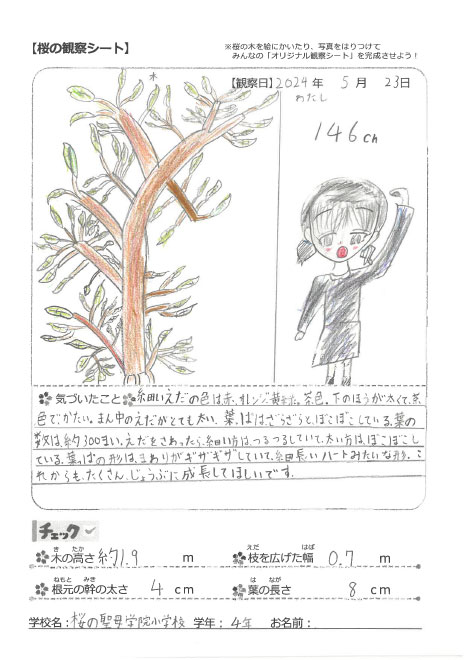 【桜の観察シート】
※桜の木を絵にかいたり、写真をはりつけて
みんなの「オリジナル観察シート」を完成させよう！
木
【観察日】2024年 5月 23日
わたし
146cm
気づいたこと 細いえだの色は、赤、オレンジ、黄、茶色。下のほうが太くて、茶
色でかたい。まん中のえだがとても太い。葉っぱはざらざらと、ぼこぼこしている。葉の
数は、約300まい。えだをさわったら、細い方は、つるつるしていて、太い方は、ぼこぼこし
ている。葉っぱの形は、まわりがギザギザしていて、細長いハートみたいな形。こ
れからも、たくさん、じょうぶに成長してほしいです。
チェック
木の高さ 約1.9 m
枝を広げた幅 0.7 m
根元の幹の太さ 4 cm
葉の長さ 8 cm
学校名：桜の聖母学院小学校 学年：4年 お名前：